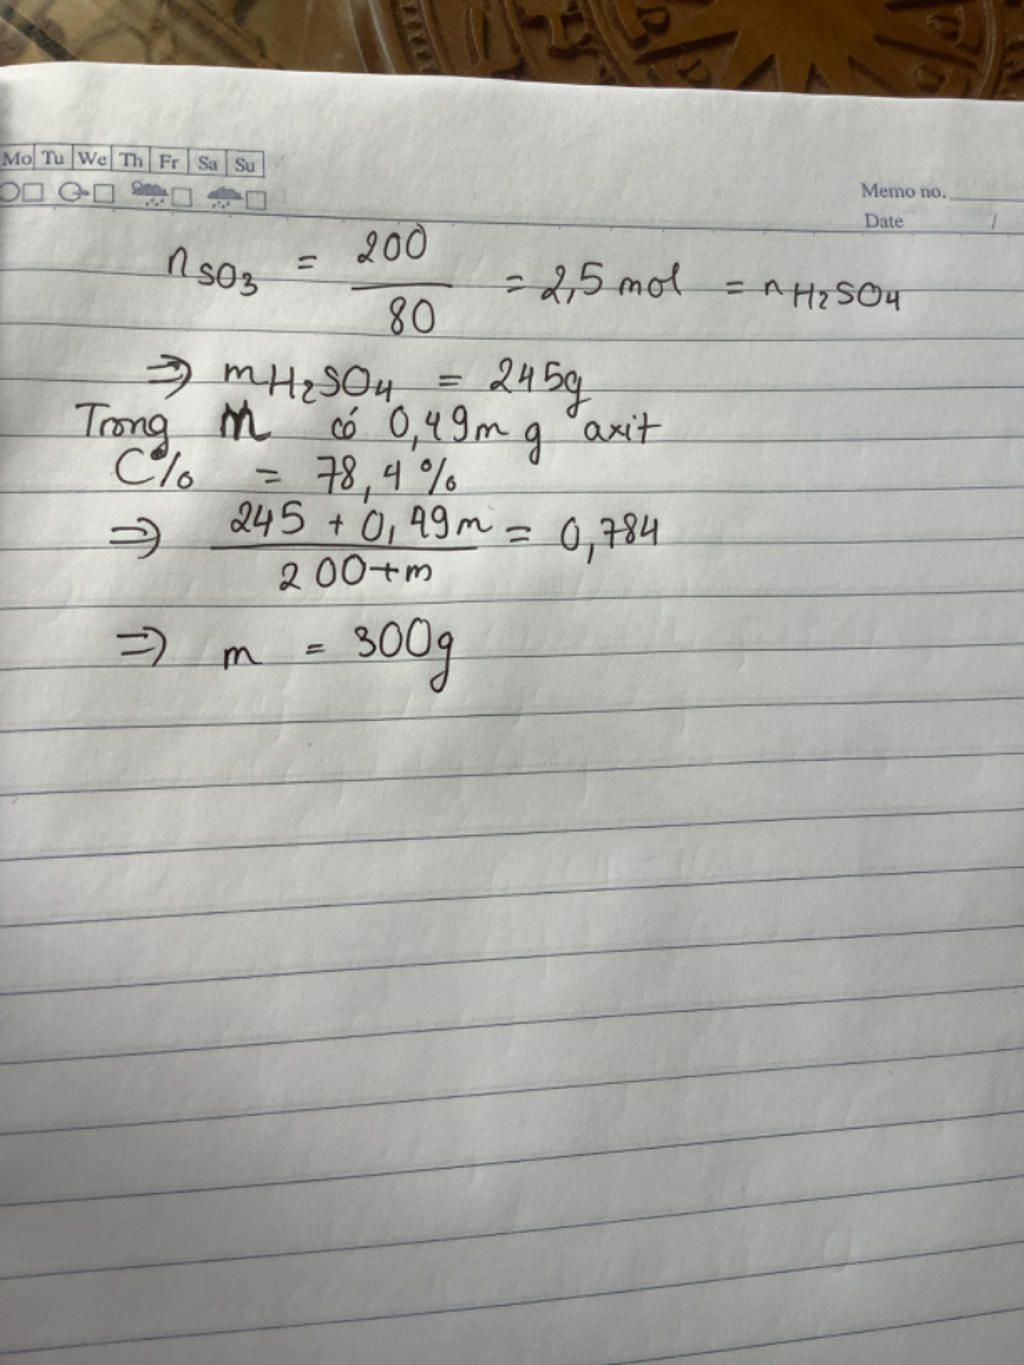 Mo Tu We Th Fr Sa Su
Memo no.
Date /
nSO3 = 200 / 80 = 2,5 mol = nH2SO4
⇒ mH2SO4 = 245g
Trong m có 0,49m g axit
C% = 78,4%
⇒ 245 + 0,49m / 200+m = 0,784
⇒ m = 300g